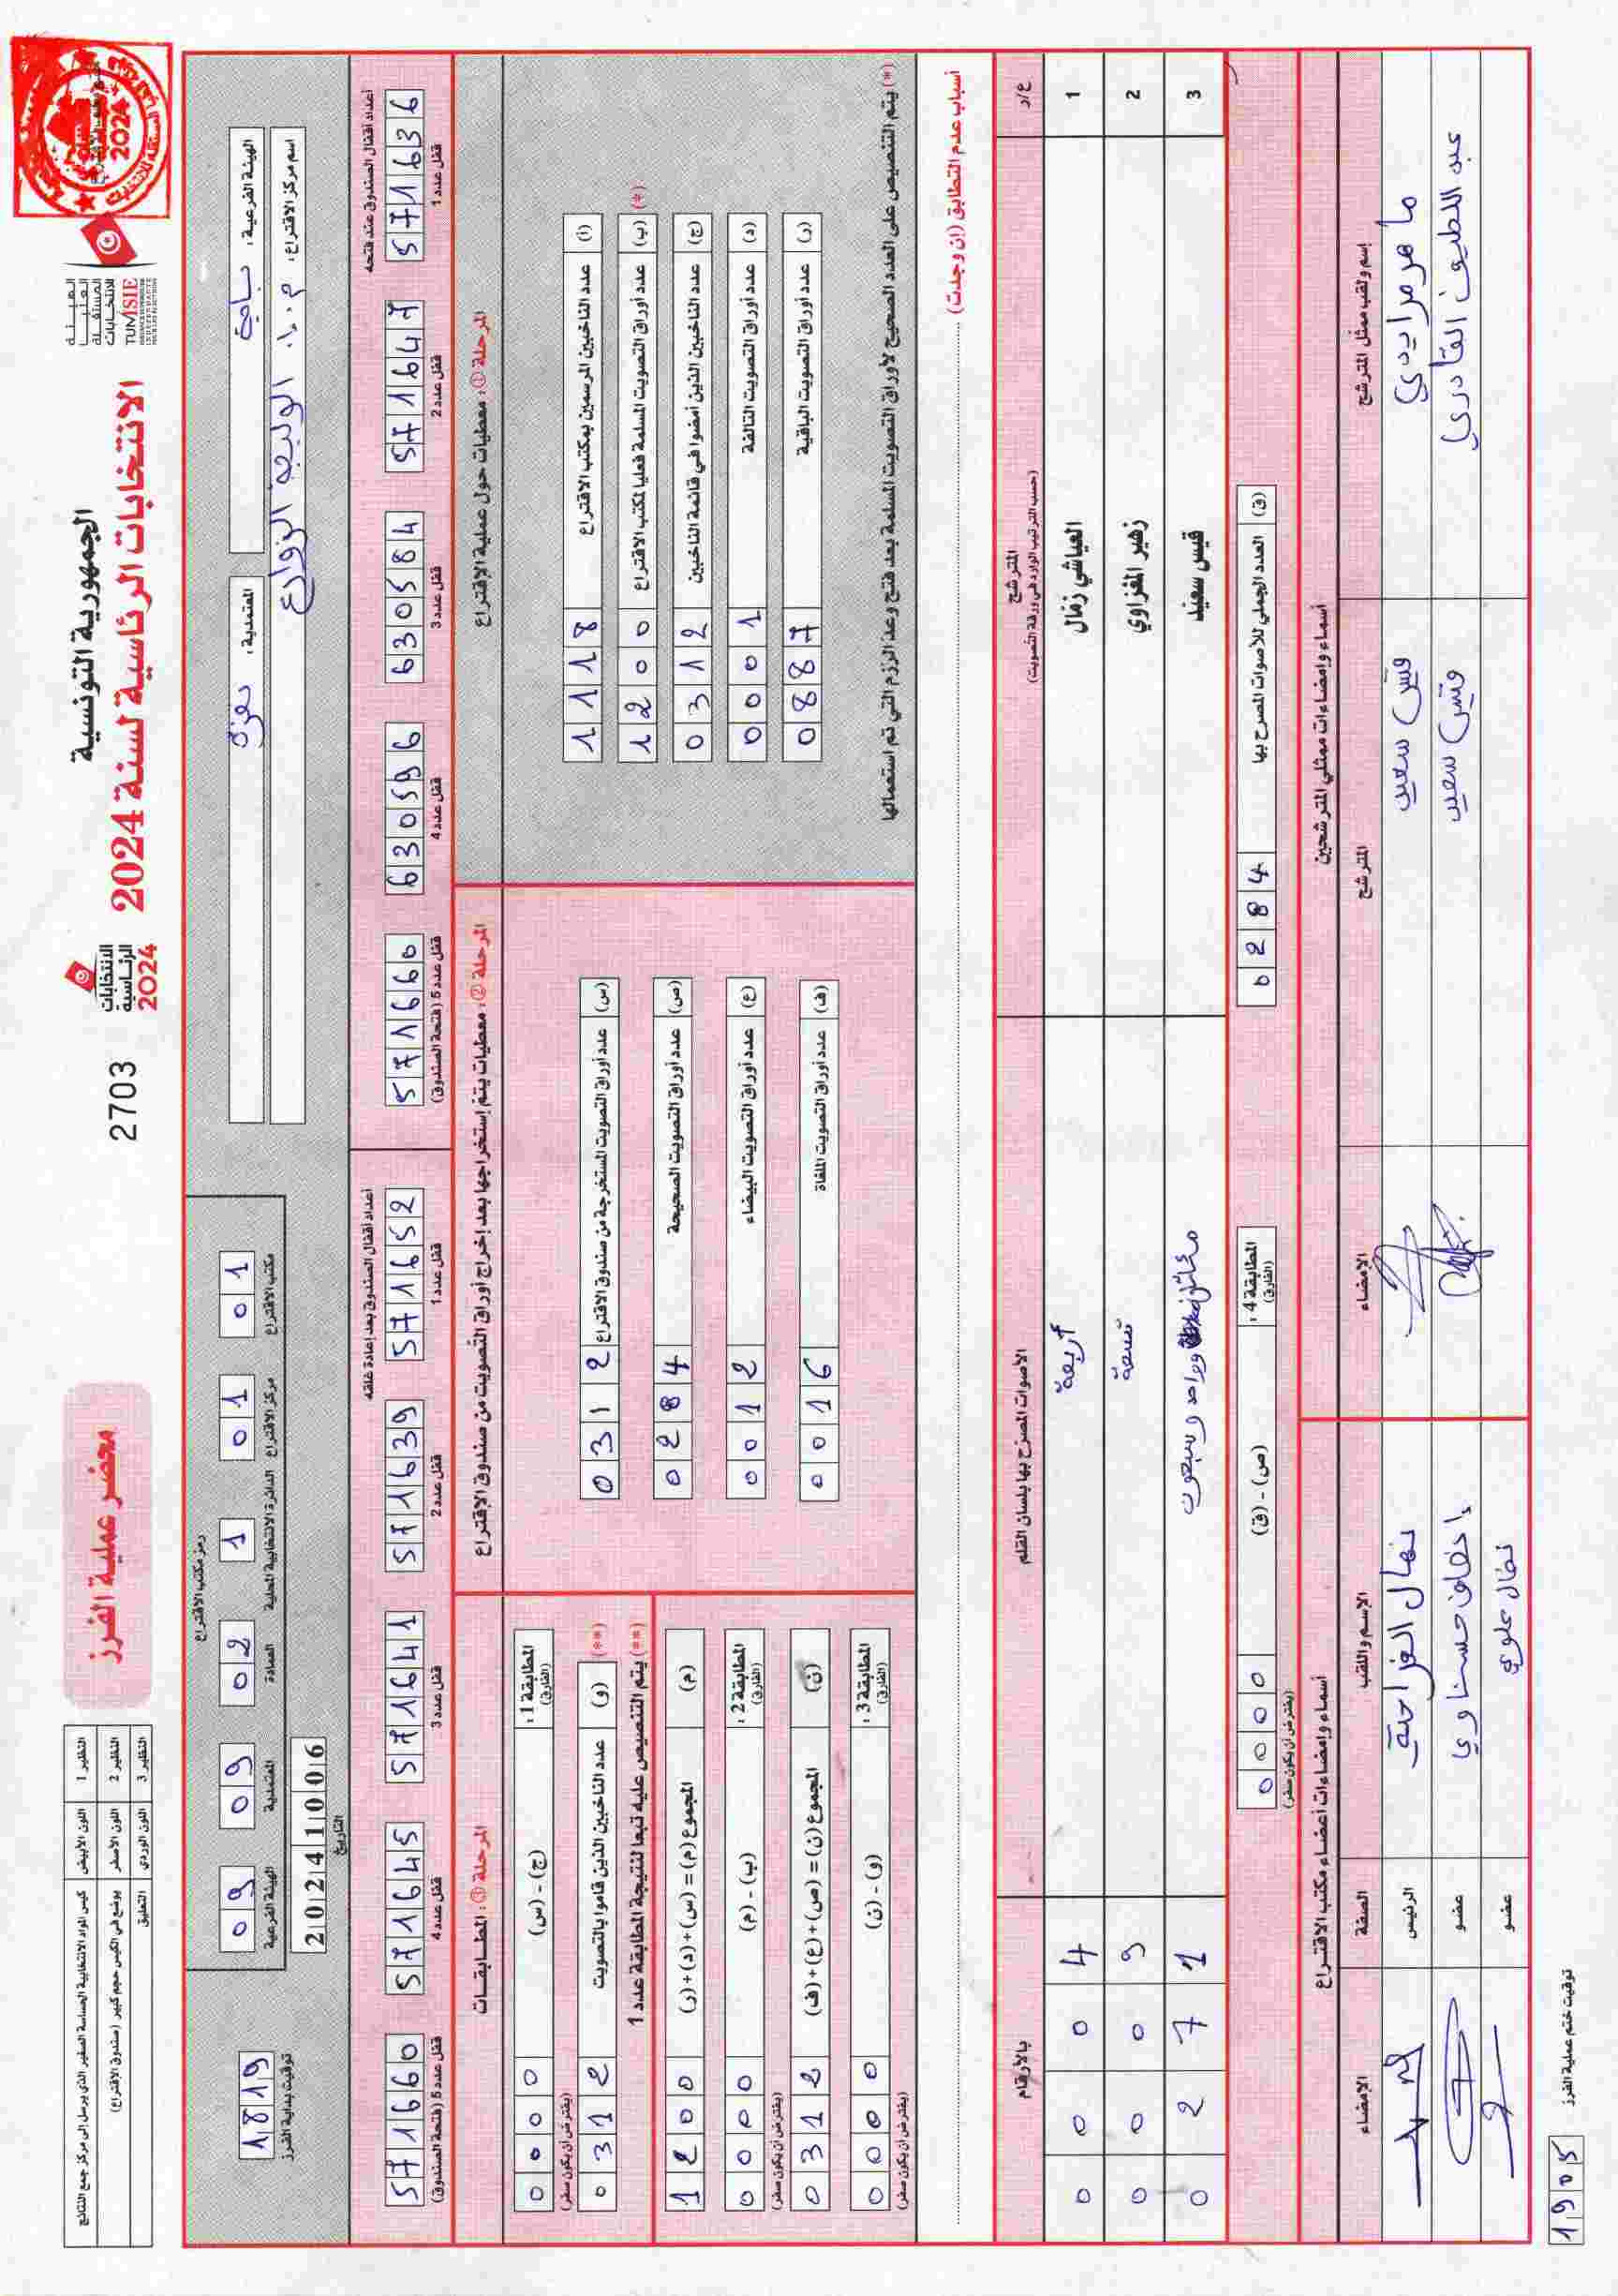 الجمهورية التونسية
الانتخابات الرئاسية لسنة 2024
الهيئة
العليا
المستقلة
للانتخابات
TUNISIE
الانتخابات
الرئاسية
2024
2703
محضر عملية الفرز
النظير 1 اللون الأبيض كيس المواد الانتخابية الحساسة الصغير الذي يرسل إلى مركز جمع النتائج
النظير 2 اللون الأصفر يوضع في الكيس حجم كبير (صندوق الاقتراع)
النظير 3 اللون الوردي التعليق
الهيئة الفرعية: باجة
المعتمدية: نفزة
اسم مركز الاقتراع: م. إ. الوليجة الزوارع
رمز مكتب الاقتراع
09 09 02 1 01 01
الهيئة الفرعية المعتمدية العمادة الدائرة الانتخابية المحلية مركز الاقتراع مكتب الاقتراع
20241006
التاريخ
1819
توقيت بداية الفرز
أعداد أقفال الصندوق عند فتحه
571636 قفل عدد 1
571647 قفل عدد 2
630584 قفل عدد 3
630596 قفل عدد 4
571660 قفل عدد 5 (فتحة الصندوق)
أعداد أقفال الصندوق بعد إعادة غلقه
571652 قفل عدد 1
571639 قفل عدد 2
571641 قفل عدد 3
571645 قفل عدد 4
571660 قفل عدد 5 (فتحة الصندوق)
المرحلة ①: معطيات حول عملية الاقتراع
(أ) عدد الناخبين المرسمين بمكتب الاقتراع 1118
(ب) عدد أوراق التصويت المسلمة فعليا لمكتب الاقتراع 1200 (*)
(ج) عدد الناخبين الذين أمضوا في قائمة الناخبين 0312
(د) عدد أوراق التصويت التالفة 0001
(ر) عدد أوراق التصويت الباقية 0887
(*) يتم التنصيص على العدد الصحيح لأوراق التصويت المسلمة بعد فتح وعد الرزم التي تم استعمالها
المرحلة ②: معطيات يتم إستخراجها بعد إخراج أوراق التصويت من صندوق الإقتراع
(س) عدد أوراق التصويت المستخرجة من صندوق الاقتراع 0312
(ص) عدد أوراق التصويت الصحيحة 0284
(ع) عدد أوراق التصويت البيضاء 0012
(ف) عدد أوراق التصويت الملغاة 0016
المرحلة ③: المطابقات
المطابقة 1: (الفارق) (ج) - (س) 0000 (يفترض أن يكون صفر)
(**) (و) عدد الناخبين الذين قاموا بالتصويت 0312
(**) يتم التنصيص عليه تبعا لنتيجة المطابقة عدد 1
(م) المجموع (م) = (س) + (د) + (ر) 1200
المطابقة 2: (الفارق) (ب) - (م) 0000 (يفترض أن يكون صفر)
(ن) المجموع (ن) = (ص) + (ع) + (ف) 0312
المطابقة 3: (الفارق) (و) - (ن) 0000 (يفترض أن يكون صفر)
أسباب عدم التطابق (إن وجدت)
ع/ر المترشح (حسب الترتيب الوارد في ورقة التصويت) الأصوات المصرح بها بلسان القلم بالأرقام
1 العياشي زمال أربعة 0004
2 زهير المغزاوي تسعة 0009
3 قيس سعيد مئتان وواحد وسبعون 0271
(ق) العدد الجملي للأصوات المصرح بها 0284
المطابقة 4: (الفارق) (ص) - (ق) 0000 (يفترض أن يكون صفر)
أسماء وإمضاءات ممثلي المترشحين
إسم ولقب ممثل المترشح المترشح الإمضاء
ماهر مرايدي قيس سعيد
عبد اللطيف القادري قيس سعيد
أسماء وإمضاءات أعضاء مكتب الاقتراع
الإسم واللقب الصفة الإمضاء
نهال الفراحتي الرئيس
إخلاف حسناوي عضو
نضال علوي عضو
1905 توقيت ختم عملية الفرز